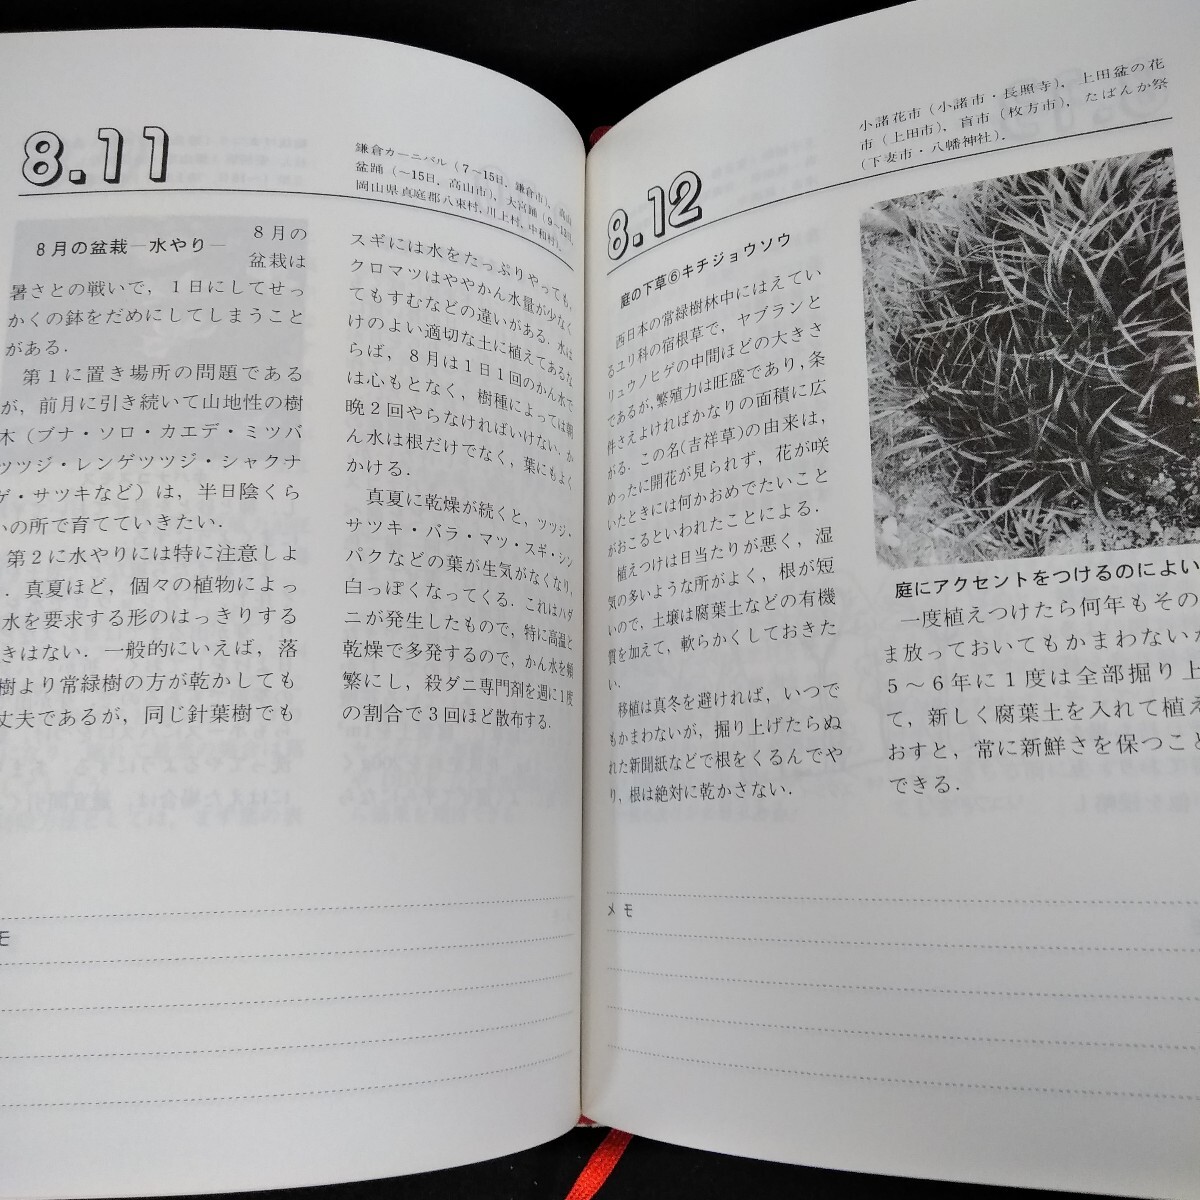 8.11
鎌倉カーニバル（7〜15日，鎌倉市），高山
盆踊（〜15日，高山市），大宮踊（9〜18日，
岡山県真庭郡八束村，川上村，中和村）．
8月の盆栽―水やり―
8月の
盆栽は
暑さとの戦いで，1日にしてせっ
かくの鉢をだめにしてしまうこと
がある．
第1に置き場所の問題である
が，前月に引き続いて山地性の樹
木（ブナ・ソロ・カエデ・ミツバ
ツツジ・レンゲツツジ・シャクナ
ゲ・サツキなど）は，半日陰くら
いの所で育てていきたい．
第2に水やりには特に注意しよ
．真夏ほど，個々の植物によっ
水を要求する形のはっきりする
きはない．一般的にいえば，落
樹より常緑樹の方が乾かしても
丈夫であるが，同じ針葉樹でも
スギには水をたっぷりやっても，
クロマツはややかん水量が少なく
てもすむなどの違いがある．水は
けのよい適切な土に植えてあるな
らば，8月は1日1回のかん水で
は心もとなく，樹種によっては朝
晩2回やらなければいけない．か
ん水は根だけでなく，葉にもよく
かける．
真夏に乾燥が続くと，ツツジ・
サツキ・バラ・マツ・スギ・シン
パクなどの葉が生気がなくなり，
白っぽくなってくる．これはハダ
ニが発生したもので，特に高温と
乾燥で多発するので，かん水を頻
繁にし，殺ダニ専門剤を週に1度
の割合で3回ほど散布する．
モ
8.12
小諸花市（小諸市・長照寺），上田盆の花
市（上田市），盲市（枚方市），たばんか祭
（下妻市・八幡神社）．
庭の下草⑥キチジョウソウ
西日本の常緑樹林中にはえてい
るユリ科の宿根草で，ヤブランと
リュウノヒゲの中間ほどの大きさ
であるが，繁殖力は旺盛であり，条
件さえよければかなりの面積に広
がる．この名（吉祥草）の由来は，
めったに開花が見られず，花が咲
いたときには何かおめでたいこと
がおこるといわれたことによる．
植えつけは日当たりが悪く，湿
気の多いような所がよく，根が短
いので，土壌は腐葉土などの有機
質を加えて，軟らかくしておきた
い．
移植は真冬を避ければ，いつで
もかまわないが，掘り上げたらぬ
れた新聞紙などで根をくるんでや
り，根は絶対に乾かさない．
庭にアクセントをつけるのによい
一度植えつけたら何年もその
ま放っておいてもかまわない
5〜6年に1度は全部掘り上
て，新しく腐葉土を入れて植え
おすと，常に新鮮さを保つこと
できる．
メモ